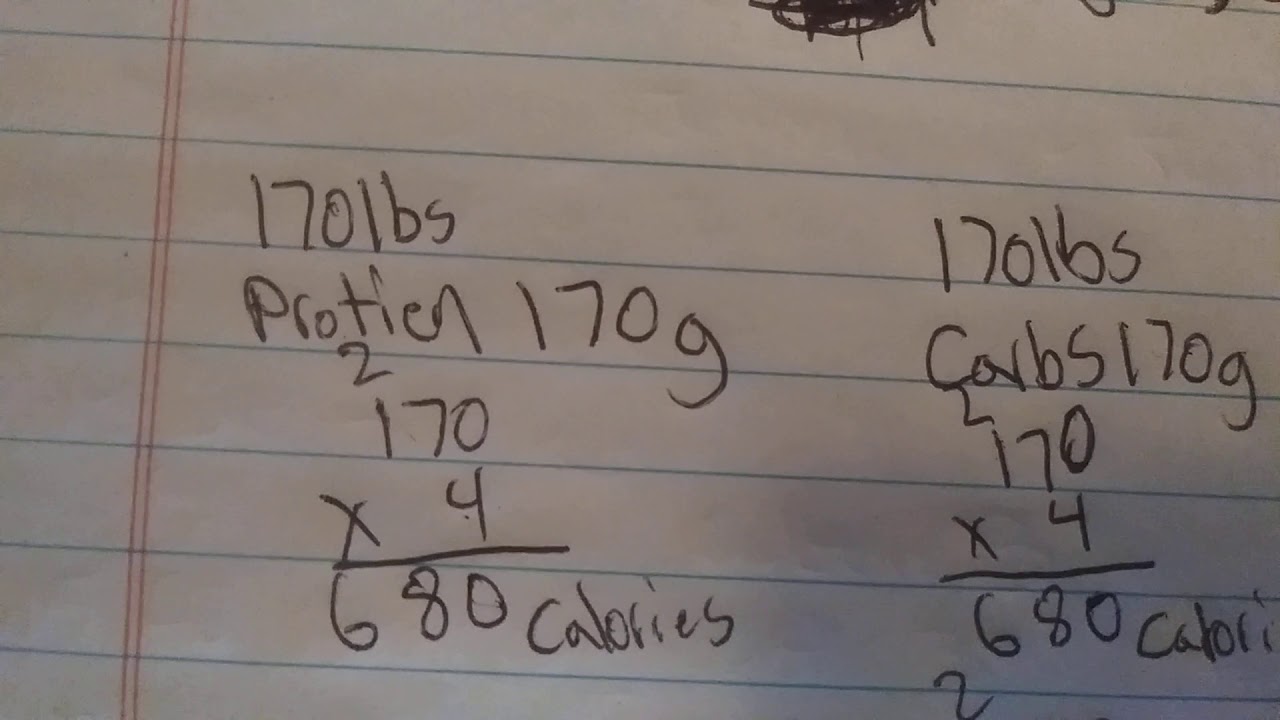 170lbs
Protien 170g
2
170
x 4
680 calories
170lbs
Carbs 170g
2
170
x 4
680 calori
2